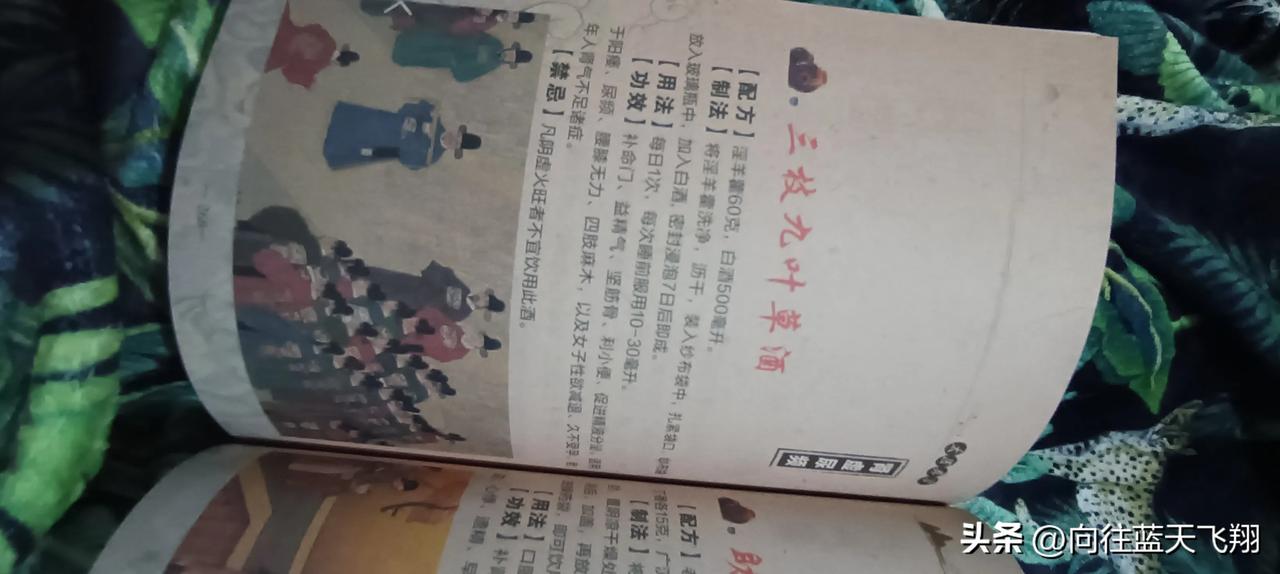 肾虚尿频
三枝九叶草酒
【配方】淫羊藿60克，白酒500毫升。
【制法】将淫羊藿洗净，沥干，装入纱布袋中，扎紧袋口，
放入玻璃瓶中，加入白酒，密封浸泡7日后即成。
【用法】每日1次，每次睡前服用10-30毫升。
【功效】补命门、益精气、坚筋骨、利小便、促进精液分泌，适用
于阳痿、尿频、腰膝无力、四肢麻木，以及女子性欲减退、久不受孕，
年人肾气不足诸症。
【禁忌】凡阴虚火旺者不宜饮用此酒。
【配方】
各15克，
【制法】将
置阴凉干燥处
加盖，再放
即可饮
【用法】口服
【功效】补
遗精、早
头条 @向往蓝天飞翔